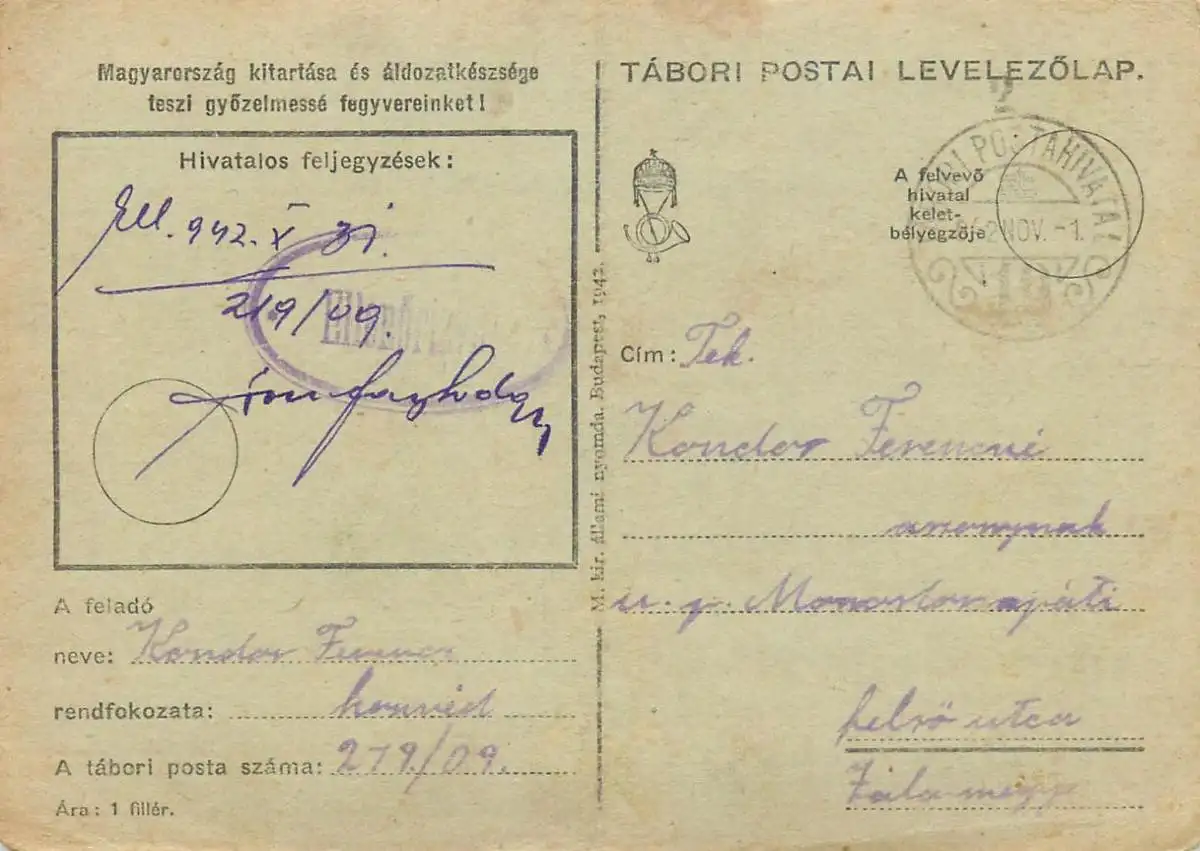 Magyarország kitartása és áldozatkészsége
teszi győzelmessé fegyvereinket!
Hivatalos feljegyzések:
Ell. 942. X 31.
219/09.
Ellenőr
A feladó
neve: Kondor Ferenc
rendfokozata: honvéd
A tábori posta száma: 219/09.
Ára: 1 fillér.
M. kir. állami nyomda. Budapest, 1942.
TÁBORI POSTAI LEVELEZŐLAP.
A felvevő
hivatal
kelet-
bélyegzője
POSTAHIVATAL
NOV. -1.
Cím: Tek.
Kondor Ferencné
asszonynak
u. p. Monostorapáti
felső utca
Zala megye